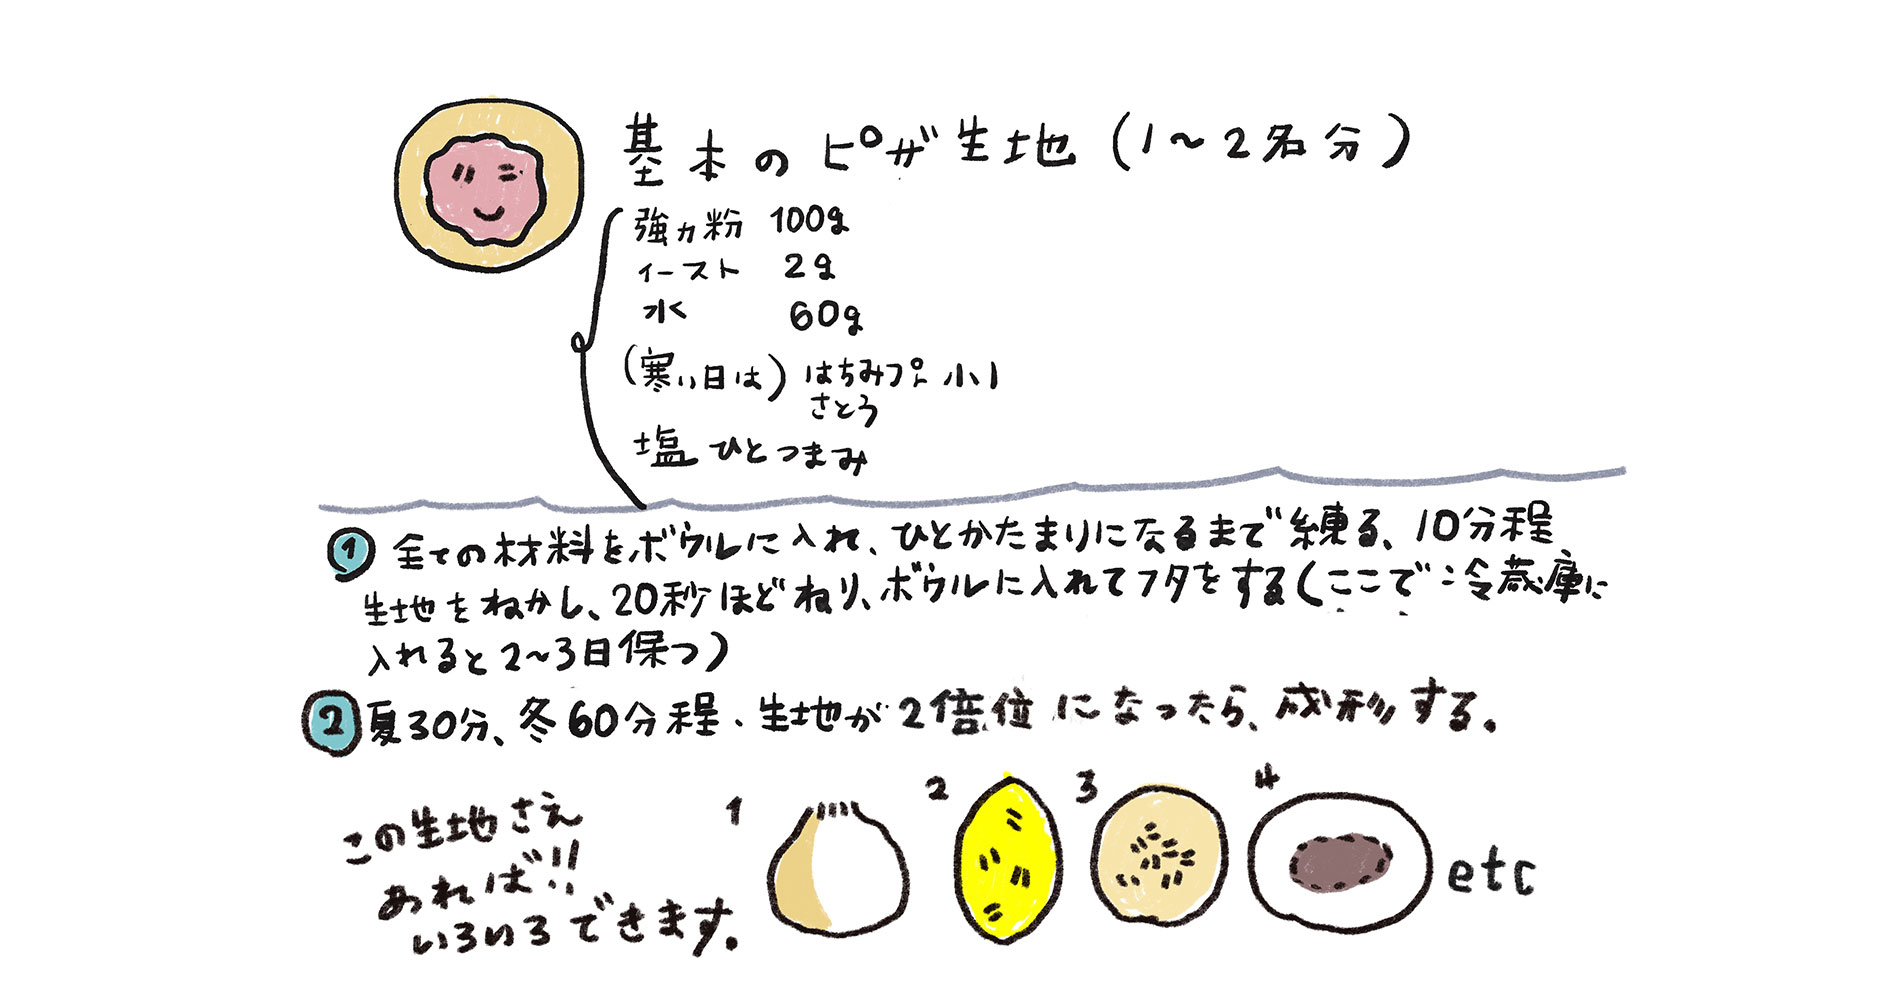 基本のピザ生地(1〜2名分)
強力粉 100g
イースト 2g
水 60g
(寒い日は) はちみつ 小1
さとう
塩 ひとつまみ
① 全ての材料をボウルに入れ、ひとかたまりになるまで練る、10分程
生地をねかし、20秒ほどねり、ボウルに入れてフタをする(ここで冷蔵庫に
入れると2〜3日保つ)
② 夏30分、冬60分程、生地が2倍位になったら、成形する。
この生地さえ
あれば!!
いろいろできます。
1 2 3 4 etc